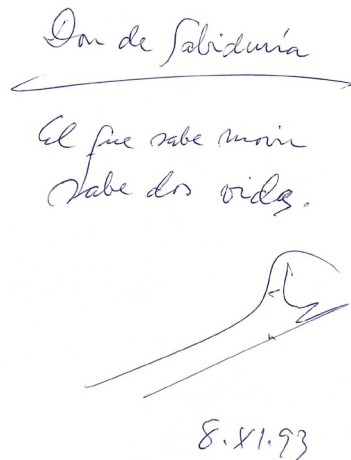 Don de Sabiduría
El que sabe morir
sabe dos vidas.
8.XI.93